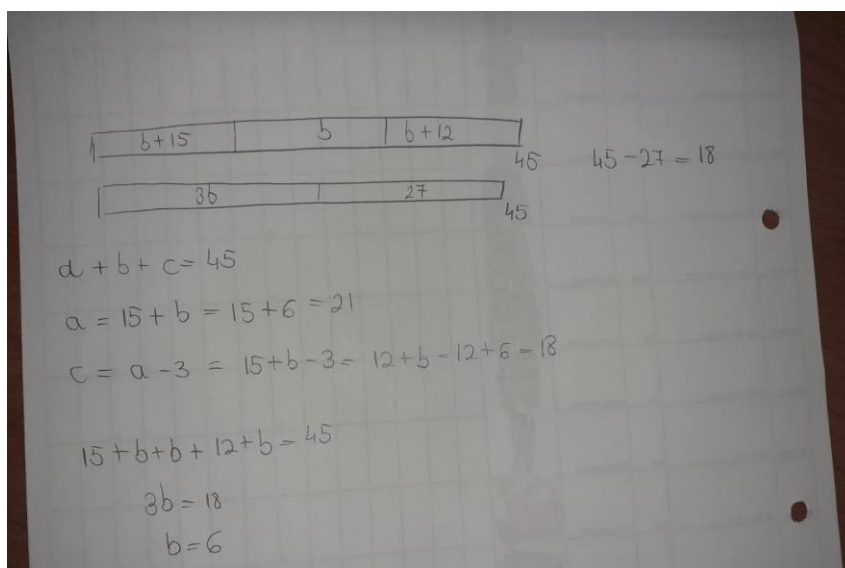 b+15 b b+12
45 45-27=18
3b 27
45
a+b+c=45
a=15+b=15+6=21
c=a-3=15+b-3=12+b-12+6-18
15+b+b+12+b=45
3b=18
b=6